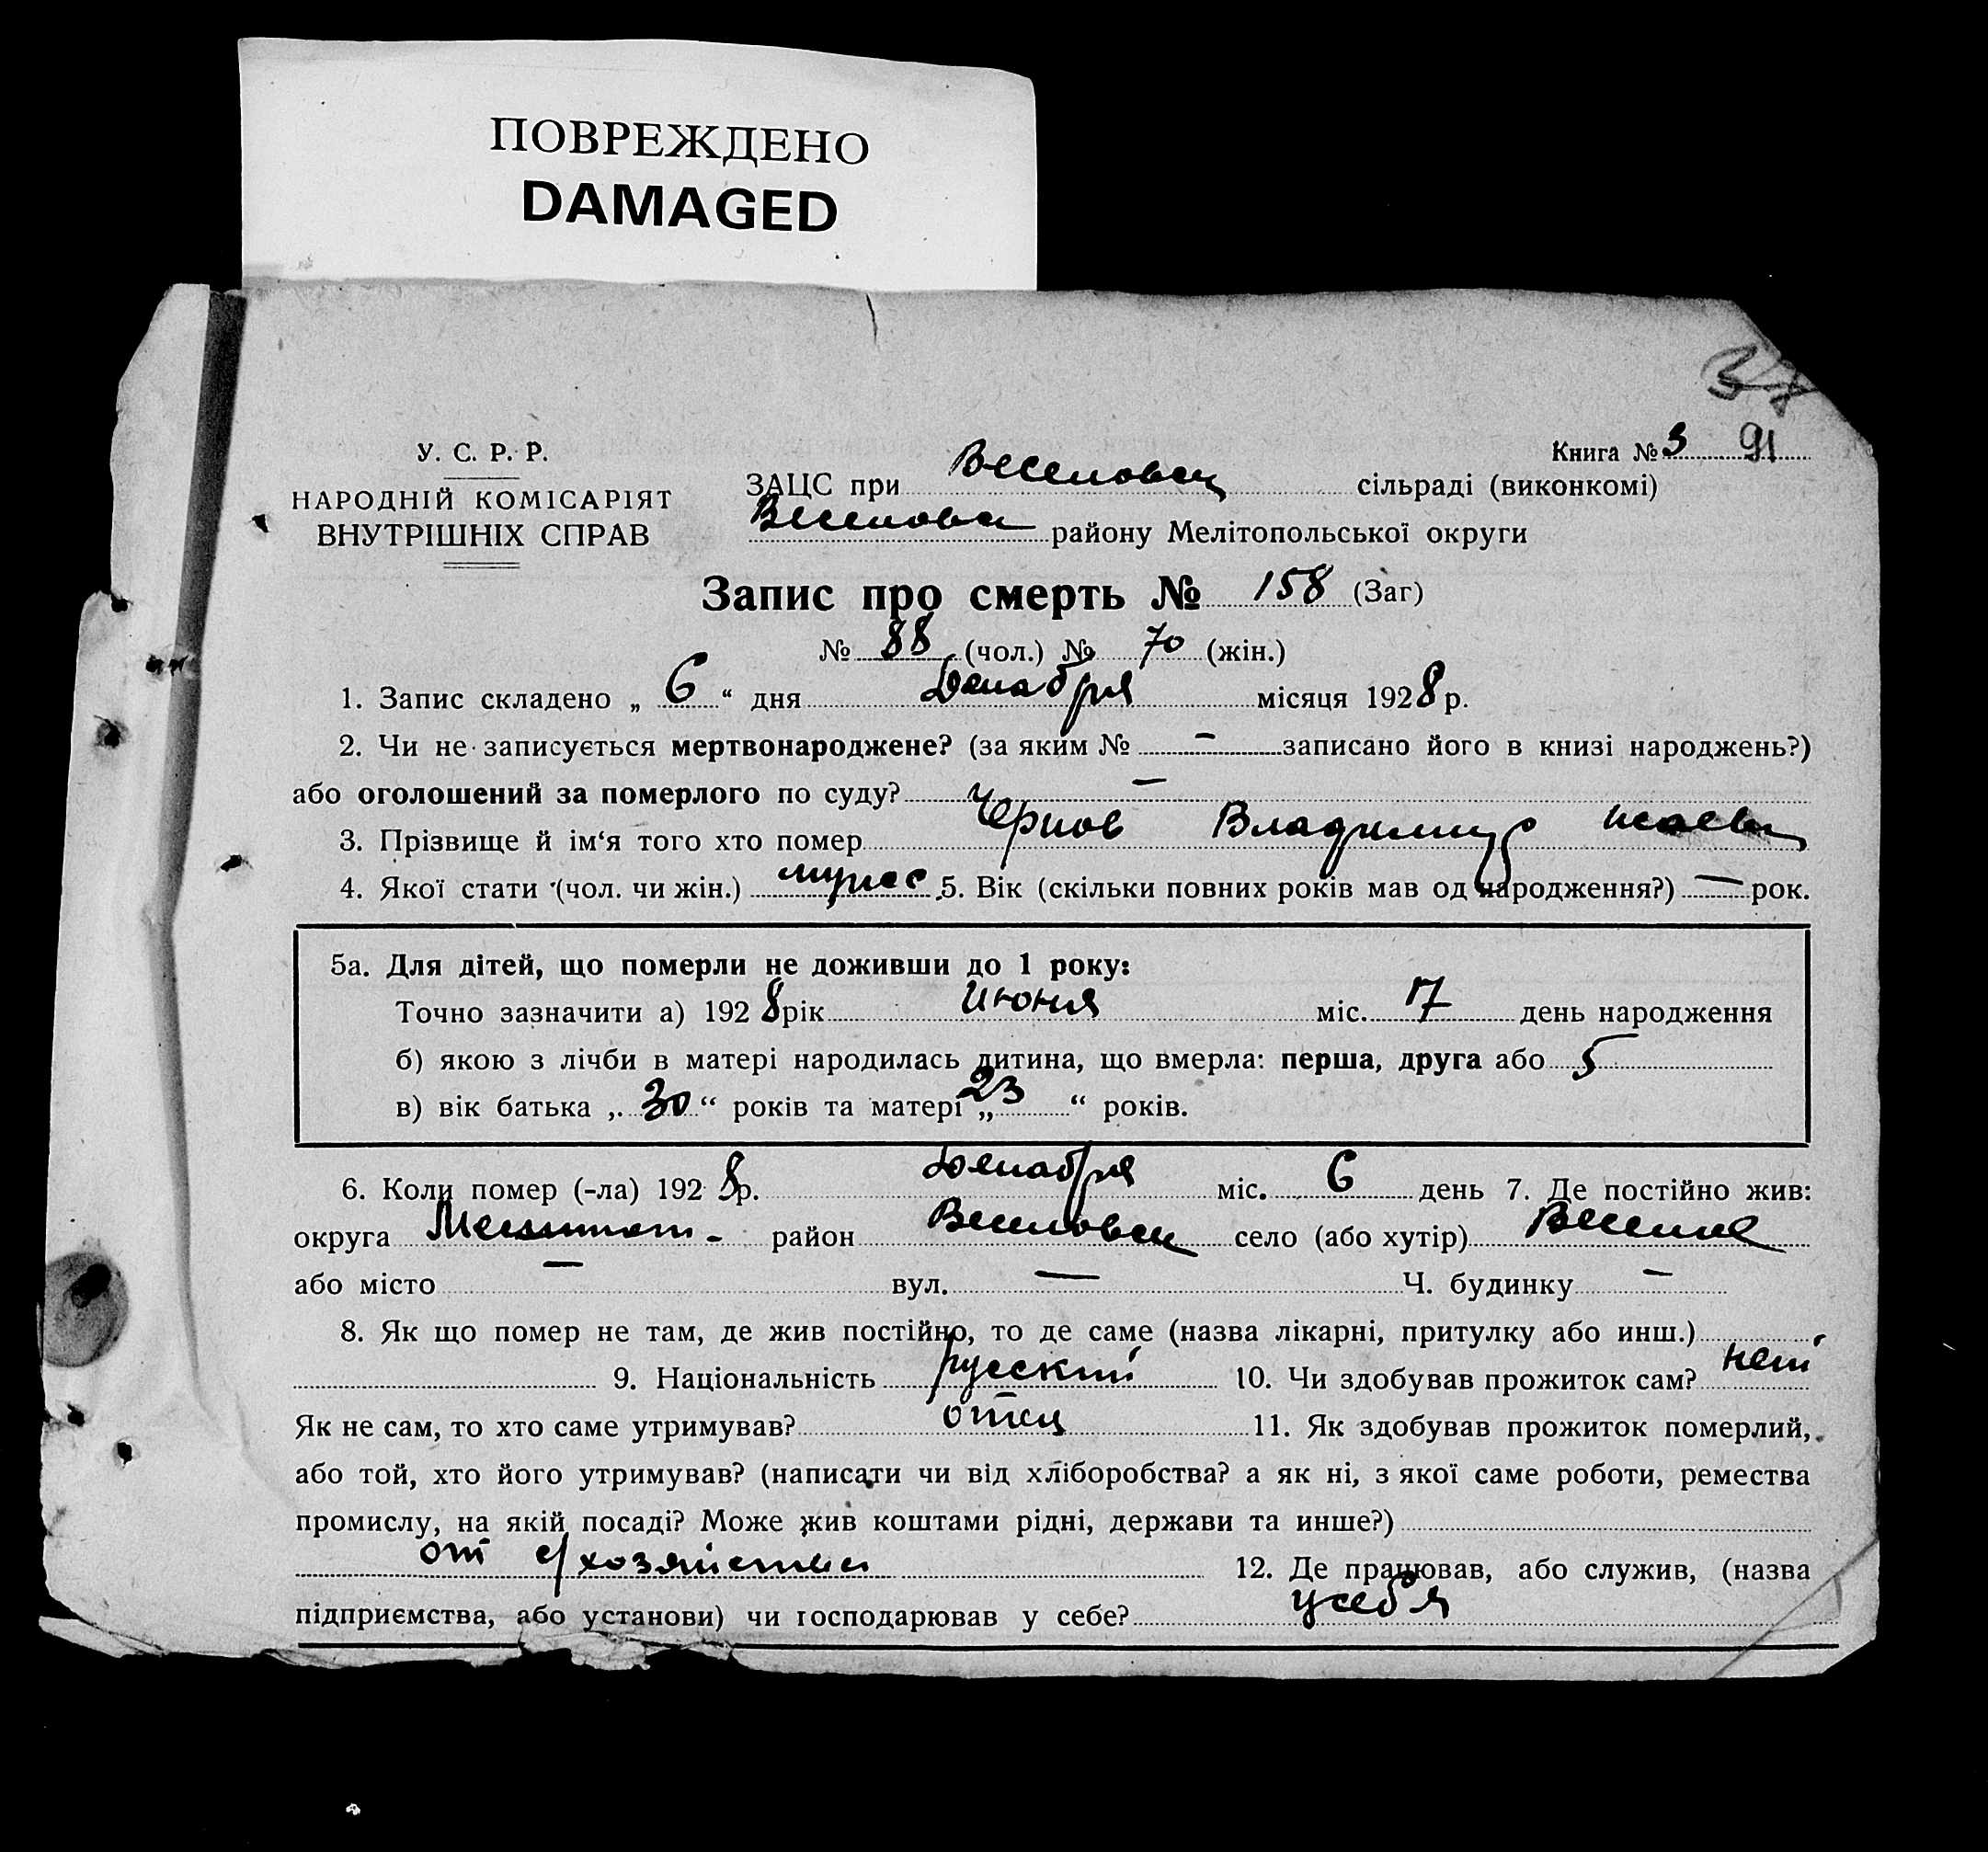 ПОВРЕЖДЕНО
DAMAGED
Книга № 3 91
У. С. Р. Р.
НАРОДНІЙ КОМІСАРІЯТ
ВНУТРІШНІХ СПРАВ
ЗАЦС при Веселовск сільраді (виконкомі)
Веселовск району Мелітопольської округи
Запис про смерть № 158 (Заг)
№ 88 (чол.) № 70 (жін.)
1. Запис складено „ 6 “ дня Декабря місяця 1928 р.
2. Чи не записується мертвонароджене? (за яким № — записано його в книзі народжень?)
або оголошений за померлого по суду? —
3. Прізвище й ім‘я того хто помер Чернов Владимир
4. Якої стати (чол. чи жін.) мужес. 5. Вік (скільки повних років мав од народження?) — рок.
5а. Для дітей, що померли не доживши до 1 року:
Точно зазначити а) 1928 рік Июня міс. 17 день народження
б) якою з лічби в матері народилась дитина, що вмерла: перша, друга або 5
в) вік батька „ 30 “ років та матері „ 23 “ років.
6. Коли помер (-ла) 1928 р. Декабря міс. 6 день 7. Де постійно жив:
округа Мелитоп- район Веселовск село (або хутір) Веселое
або місто — вул. — Ч. будинку —
8. Як що помер не там, де жив постійно, то де саме (назва лікарні, притулку або инш.)
9. Національність русский 10. Чи здобував прожиток сам? нет
Як не сам, то хто саме утримував? отец 11. Як здобував прожиток померлий,
або той, хто його утримував? (написати чи від хліборобства? а як ні, з якої саме роботи, ремества
промислу, на якій посаді? Може жив коштами рідні, держави та инше?)
от с/хозяйства 12. Де працював, або служив, (назва
підприємства, або установи) чи господарював у себе? у себя